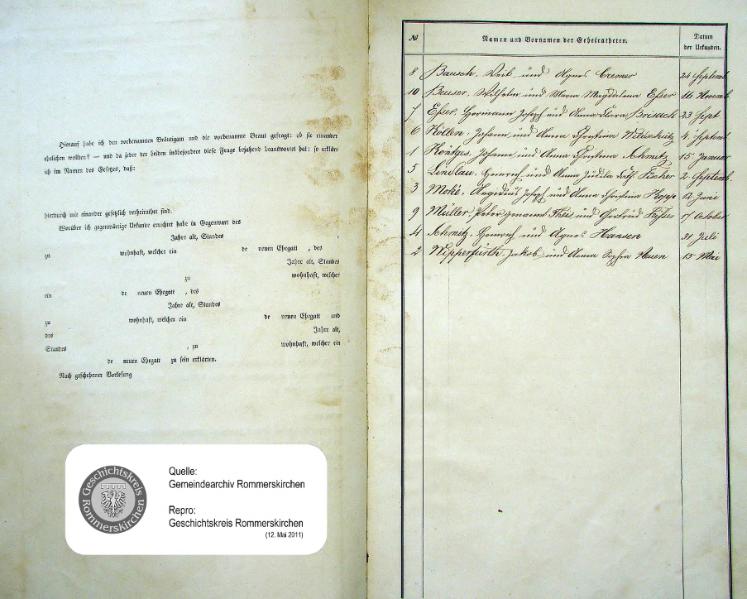 Hierauf habe ich den vorbenannten Bräutigam und die vorbenannte Braut gefragt: ob sie einander
ehelichen wollen? — und da jeder der beiden insbesondere diese Frage bejahend beantwortet hat: so erkläre
ich im Namen des Gesetzes, daß:
hierdurch mit einander gesetzlich verheirathet sind.
Worüber ich gegenwärtige Urkunde errichtet habe in Gegenwart des
Jahre alt, Standes
zu wohnhaft, welcher ein de neuen Ehegatt , des
Jahre alt, Standes
zu wohnhaft, welcher
ein de neuen Ehegatt , des
Jahre alt, Standes
zu wohnhaft, welchen ein de neuen Ehegatt und
des Jahre alt,
Standes , zu wohnhaft, welcher ein
de neuen Ehegatt zu sein erklärten.
Nach geschehener Vorlesung
Geschichtskreis Rommerskirchen
Quelle:
Gemeindearchiv Rommerskirchen
Repro:
Geschichtskreis Rommerskirchen
(12. Mai 2011)
№ Namen und Vornamen der Geheiratheten. Datum der Urkunden.
8 Bausch, Veit und Agnes Cremer 24 Septemb
10 Beuser, Wilhelm und Maria Magdalena Esser 16 Novemb
7 Esser, Hermann Josef und Anna Maria 23 Sept
6 Johann und Anna Christina 4 Septemb
1 Höntges, Johann und Anna Christina Schmitz 15 Januar
5 Heinrich und Anna Fischer 2 Septemb.
3 Josef und Anna Christina Hopp 12 Juni
9 Müller, Peter genannt Theis und Gertrud 17 October
4 Schmitz, Heinrich und Agnes Hansen 31 Juli
2 Wipperfürth, Jakob und Anna Sophia 15 Mai